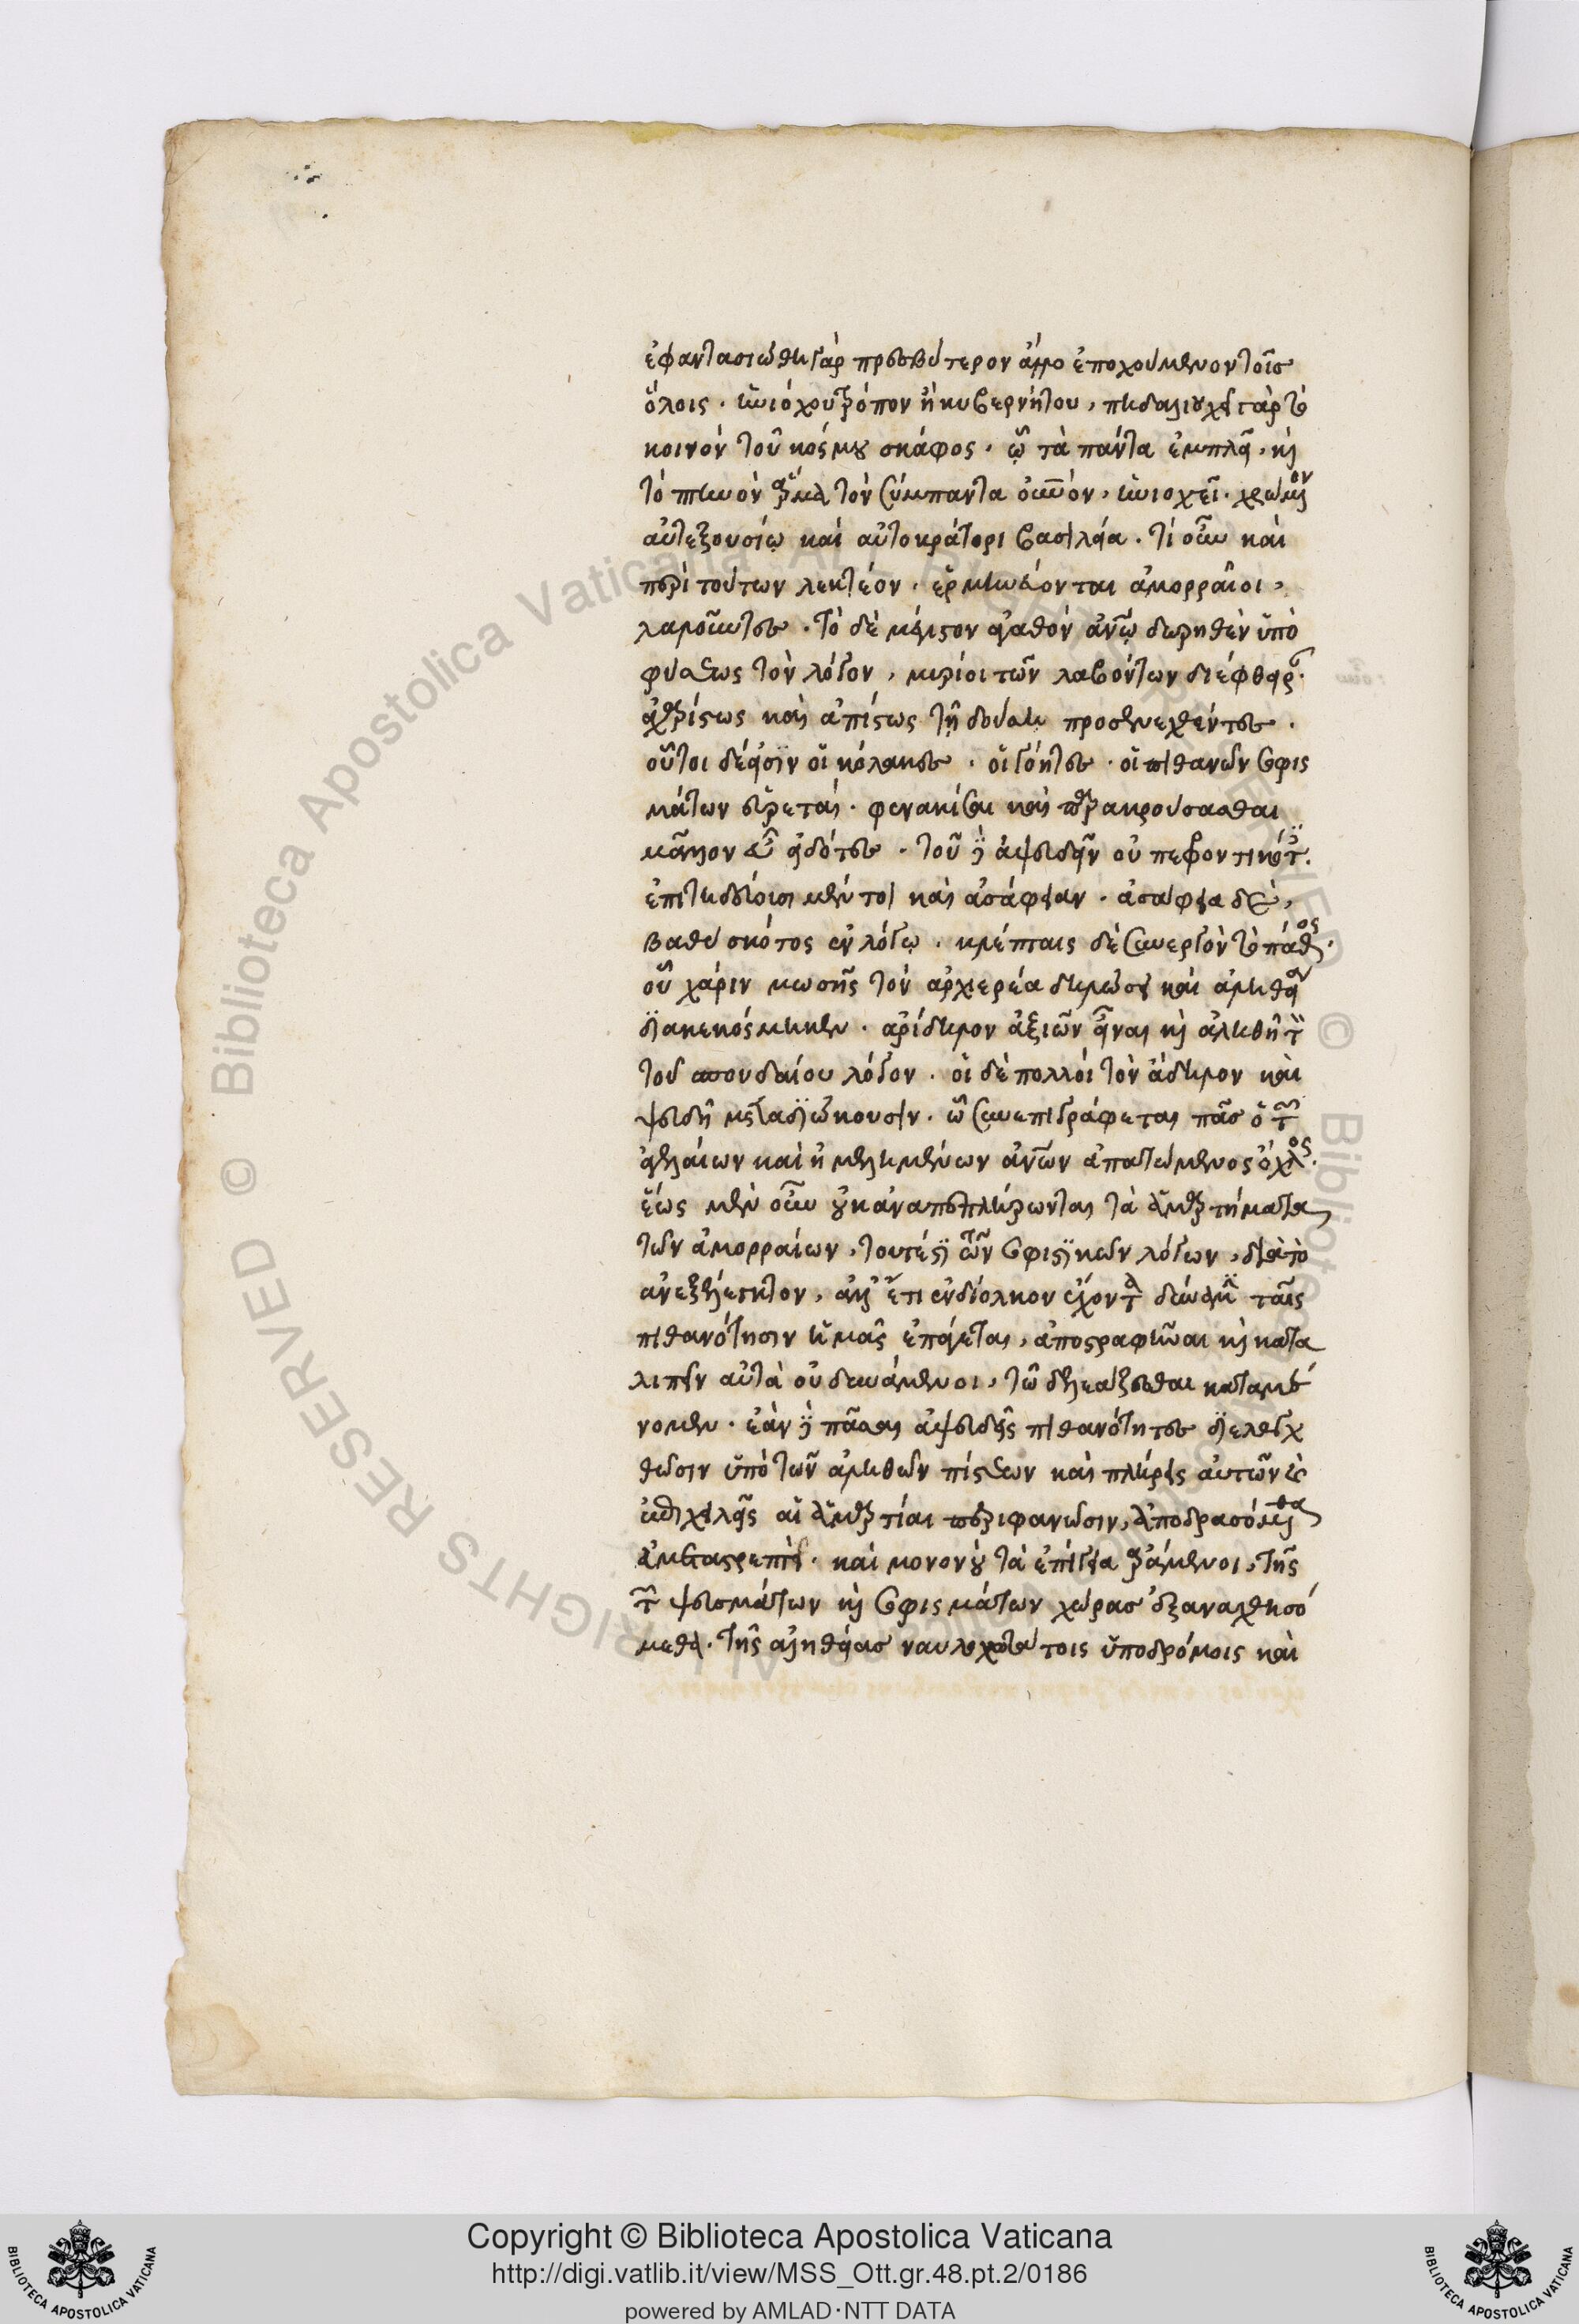 ἐφαντασιώθη γὰρ πρεσβύτερον ἄλλο ἐποχούμενον τοῖς
ὅλοις. ἡνιόχου τρόπον ἢ κυβερνήτου, πηδαλιουχεῖ γὰρ τὸ
κοινὸν τοῦ κόσμου σκάφος. ᾧ τὰ πάντα ἐμπλεῖ, καὶ
τὸ πτηνὸν ἅρμα τὸν σύμπαντα οὐνὸν, ἡνιοχεῖ. χρώμενον
αὐτεξουσίῳ καὶ αὐτοκράτορι βασιλεία. τί οὖν καὶ
περὶ τούτων λεκτέον. ἑρμηνεύονται ἀμορραῖοι,
λαλοῦντες. τὸ δὲ μέγιστον ἀγαθὸν ἀνῶ δωρηθὲν ὑπὸ
φύσεως τὸν λόγον, μυρίοι τῶν λαβόντων διέφθειρ.
ἀχαρίστως καὶ ἀπίστως τῇ δούσῃ προσενεχθέντες.
οὗτοι δέ εἰσιν οἱ κόλακες. οἱ γόητες. οἱ πιθανῶν σοφισ
μάτων εὑρεταί. φενακίσαι καὶ παρακρούσασθαι
μᾶλλον εὖ εἰδότες. τοῦ δὲ ἀψευδεῖν οὐ πεφροντικότες.
ἐπιτηδεύουσι μέντοι καὶ ἀσάφειαν. ἀσάφεια δὲ,
βαθὺ σκότος ἐν λόγῳ. κλέπταις δὲ συνεργὸν τὸ πάθος.
οὗ χάριν μωσῆς τὸν ἀρχιερέα δηλώσει καὶ ἀληθείαν
διακεκόσμηκεν. ἀρίδηλον ἀξιῶν εἶναι καὶ ἀληθῆ τὸν
τοῦ σπουδαίου λόγον. οἱ δὲ πολλοὶ τὸν ἄδηλον καὶ
ψευδῆ μεταδιώκουσιν. ᾧ συνεπιγράφεται πᾶς ὁ τῶν
εἰκαίων καὶ ἠμελημένων ἀνῶν ἀπατώμενος ὄχλος.
ἕως μὲν οὖν οὐκ ἀναπεπλήρωνται τὰ ἁμαρτήματα
τῶν ἀμορραίων, τουτέστι τῶν σοφιστικῶν λόγων, διὰ τὸ
ἀνεξέλεγκτον, ἀλλ' ἔτι ἐνδίολκον ἔχοντα δύναμιν ταῖς
πιθανότησιν ἡμᾶς ἐπάγεται, ἀποστραφῆναι καὶ κατα
λιπεῖν αὐτὰ οὐ δυνάμενοι, τῷ δελεάζεσθαι καταμέ
νομεν. ἐὰν δὲ πᾶσαι αἱ ψευδεῖς πιθανότητες διελεγχ
θῶσιν ὑπὸ τῶν ἀληθῶν πίστεων καὶ πλήρεις αὐτῶν καὶ
ἐπιχειλεῖς αἱ ἁμαρτίαι περιφανῶσιν, ἀποδρασόμεθα
ἀμεταστρεπτεί. καὶ μονονοὺ τὰ ἐπίγεια ἀράμενοι, τῆς
τῶν ψευσμάτων καὶ σοφισμάτων χώρας ἐξαναχθησό
μεθα. τῆς ἀληθείας ναυλοχωτά τοις ὑποδρόμοις καὶ
Copyright © Biblioteca Apostolica Vaticana
http://digi.vatlib.it/view/MSS_Ott.gr.48.pt.2/0186
powered by AMLAD·NTT DATA